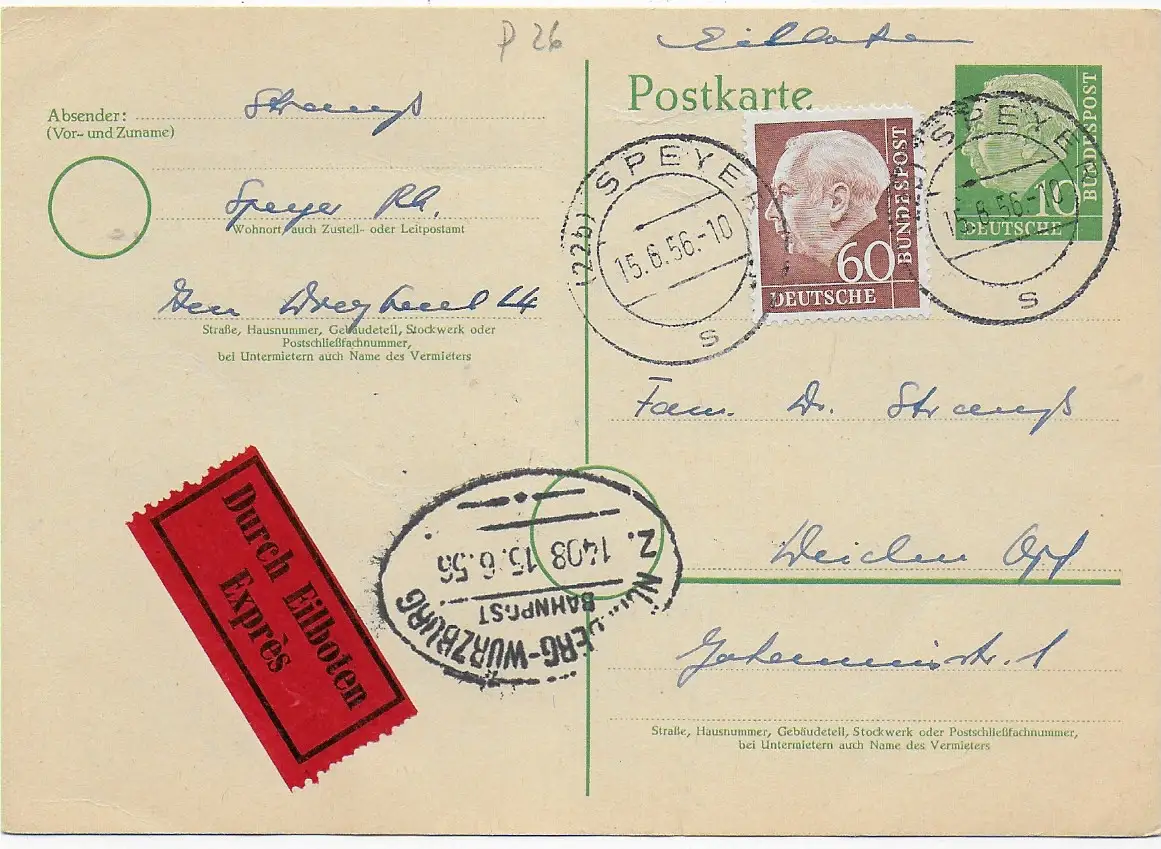 P 26
Eilboten
Postkarte
Absender:
(Vor- und Zuname)
Strauß
Speyer Rh.
Wohnort, auch Zustell- oder Leitpostamt
44
Straße, Hausnummer, Gebäudeteil, Stockwerk oder
Postschließfachnummer,
bei Untermietern auch Name des Vermieters
(22b) SPEYER
15.6.56.-10
s
60
DEUTSCHE
BUNDESPOST
SPEYER
15.6.56.-10
s
10
DEUTSCHE
BUNDESPOST
Fam. Dr. Strauß
Weiden Opf
1
Straße, Hausnummer, Gebäudeteil, Stockwerk oder Postschließfachnummer,
bei Untermietern auch Name des Vermieters
Durch Eilboten
Exprès
NÜRNBERG-WÜRZBURG
BAHNPOST
Z. 1408 15.6.56